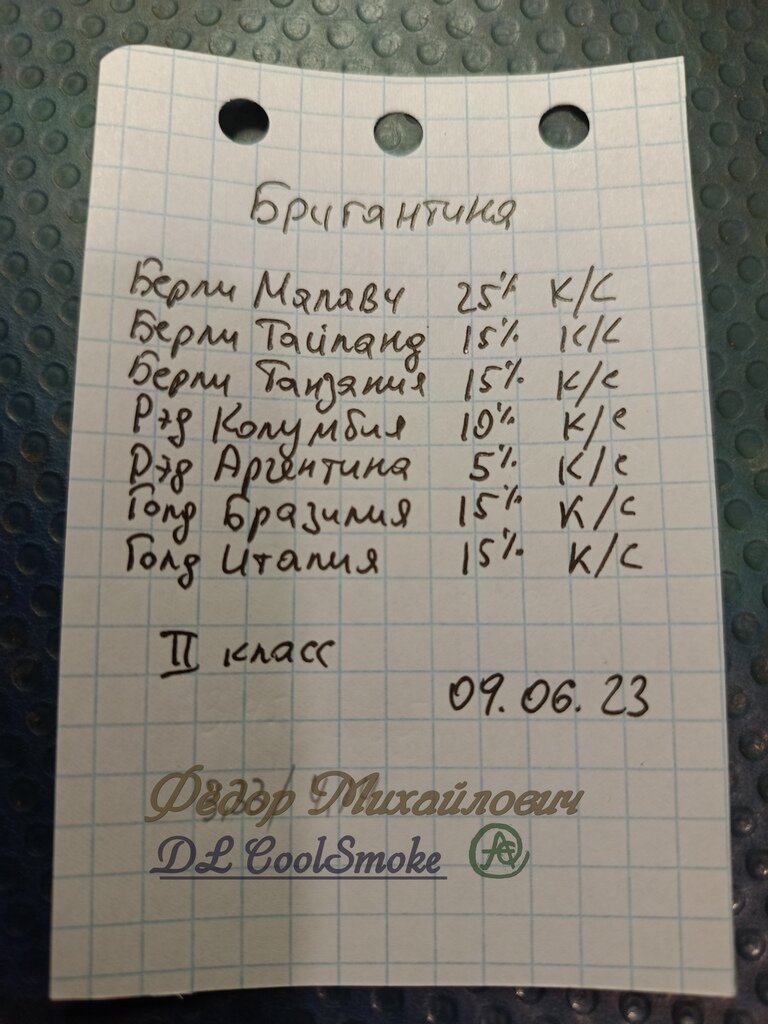 Бригантина
Берли Малави 25% К/С
Берли Тайланд 15% К/С
Берли Танзания 15% К/С
Рэд Колумбия 10% К/С
Рэд Аргентина 5% К/С
Голд Бразилия 15% К/С
Голд Италия 15% К/С
II класс
09.06.23
Фёдор Михайлович
DL CoolSmoke